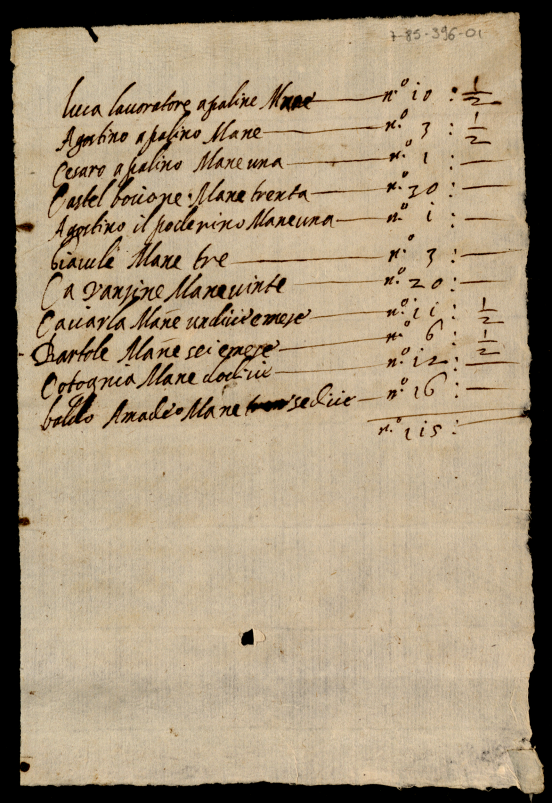 7-85-396-01
luca lauoratore apaline Mane n.º 10 : 1/2
Agostino apalino Mane n.º 3 : 1/2
Cesaro apalino Mane una n.º 1 :
Castel bocione Mane trenta n.º 30 :
Agostino il poderino Mane una n.º 1 :
Mane tre n.º 3 :
Ca Vanzine Mane vinte n.º 20 :
Cauarla Mane undiciemese n.º 11 : 1/2
Bartole Mane sei emese n.º 6 : 1/2
Cotognia Mane dodici n.º 12 :
baldo Amadeo Mane sedice n.º 16 :
n.º 115 :